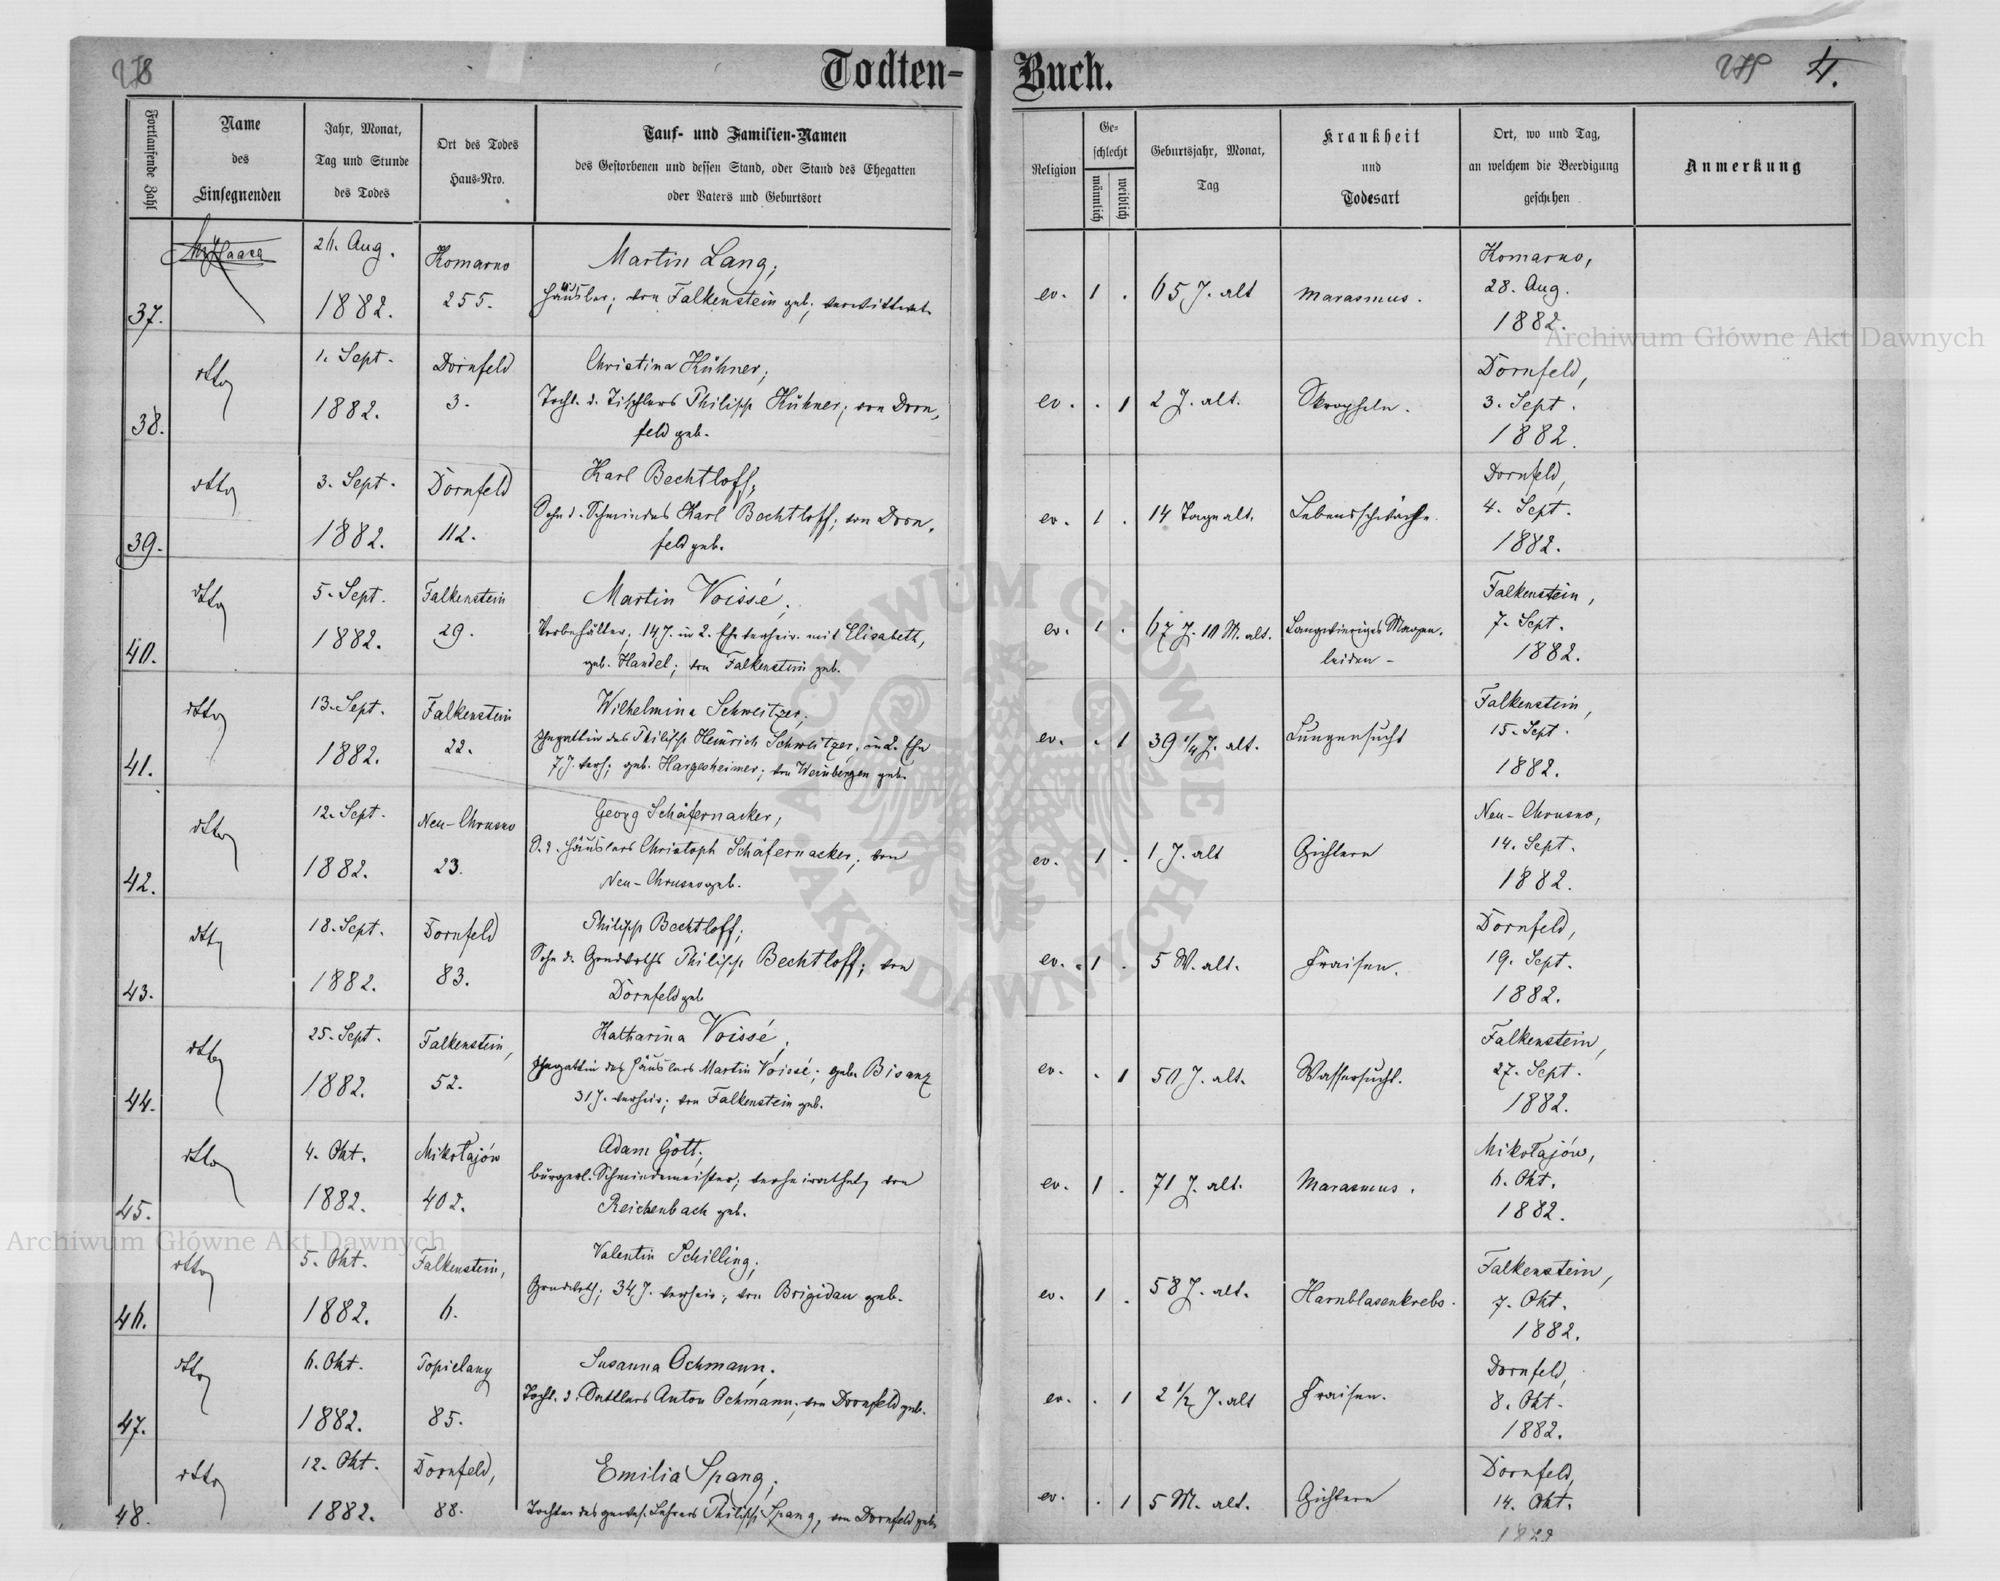 278
Todten-
Buch.
279
4.
Fortlaufende Zahl
Name
des
Einsegnenden
Jahr, Monat,
Tag und Stunde
des Todes
Ort des Todes
Haus-Nro.
Tauf- und Familien-Namen
des Gestorbenen und dessen Stand, oder Stand des Ehegatten
oder Vaters und Geburtsort
Religion
Ge-
schlecht
männlich
weiblich
Geburtsjahr, Monat,
Tag
Krankheit
und
Todesart
Ort, wo und Tag,
an welchem die Beerdigung
geschehen
Anmerkung
37.
26. Aug.
1882.
Komarno
255.
Martin Lang;
Häusler; von Falkenstein geb; verwittwet.
ev. 1 .
65 J. alt
Marasmus.
Komarno,
28. Aug.
1882.
38.
dtto
1. Sept.
1882.
Dornfeld
3.
Christina Kühner;
Tocht. d. Tischlers Philipp Kühner; von Dorn-
feld geb.
ev. . 1
2 J. alt.
Skropheln.
Dornfeld,
3. Sept.
1882.
39.
dtto
3. Sept.
1882.
Dornfeld
112.
Karl Bechtloff;
Sohn d. Schmiedes Karl Bechtloff; von Dorn-
feld geb.
ev. 1 .
14 Tage alt.
Lebensschwäche.
Dornfeld,
4. Sept.
1882.
40.
dtto
5. Sept.
1882.
Falkenstein
29.
Martin Voissé;
Vorbehälter; 14 J. in 2. Ehe verheir. mit Elisabeth,
geb. Handel; von Falkenstein geb.
ev. 1 .
67 J. 10 M. alt.
Langwieriges Magen-
leiden
Falkenstein,
7. Sept.
1882.
41.
dtto
13. Sept.
1882.
Falkenstein
22.
Wilhelmina Schweitzer;
Ehegattin des Philipp Heinrich Schweitzer, in 2. Ehe
7 J. verh; geb. Hargesheimer; von Weinbergen geb.
ev. . 1
39 1/4 J. alt.
Lungensucht
Falkenstein,
15. Sept.
1882.
42.
dtto
12. Sept.
1882.
Neu-Chrusno
23.
Georg Schäfernacker;
S. d. Häuslers Christoph Schäfernacker; von
Neu-Chrusno geb.
ev. 1 .
1 J. alt
Gichtern
Neu-Chrusno,
14. Sept.
1882.
43.
dtto
18. Sept.
1882.
Dornfeld
83.
Philipp Bechtloff;
Sohn d. Grundwths Philipp Bechtloff; von
Dornfeld geb
ev. 1 .
5 W. alt.
Fraisen.
Dornfeld,
19. Sept.
1882.
44.
dtto
25. Sept.
1882.
Falkenstein,
52.
Katharina Voissé;
Ehegattin des Häuslers Martin Voissé; geb. Bisanz
31 J. verheir; von Falkenstein geb.
ev. . 1
50 J. alt.
Wassersucht.
Falkenstein,
27. Sept.
1882.
45.
dtto
4. Okt.
1882.
Mikołajów
402.
Adam Gött;
bürgerl. Schmiedemeister; verheirathet, von
Reichenbach geb.
ev. 1 .
71 J. alt.
Marasmus.
Mikołajów,
6. Okt.
1882.
46.
dtto
5. Okt.
1882.
Falkenstein,
6.
Valentin Schilling;
Grundwth; 34 J. verheir; von Brigidau geb.
ev. 1 .
58 J. alt.
Harnblasenkrebs.
Falkenstein,
7. Okt.
1882.
47.
dtto
6. Okt.
1882.
Topielany
85.
Susanna Ochmann;
Tocht. d. Sattlers Anton Ochmann; von Dornfeld geb.
ev. . 1
2 1/2 J. alt
Fraisen.
Dornfeld,
8. Okt.
1882.
48.
dtto
12. Okt.
1882.
Dornfeld,
88.
Emilia Spang;
Tochter des gewes. Lehrers Philipp Spang, von Dornfeld geb.
ev. . 1
5 M. alt.
Gichtern
Dornfeld,
14. Okt.
1882
Archiwum Główne Akt Dawnych
Archiwum Główne Akt Dawnych
ARCHIWUM GŁÓWNE
AKT DAWNYCH